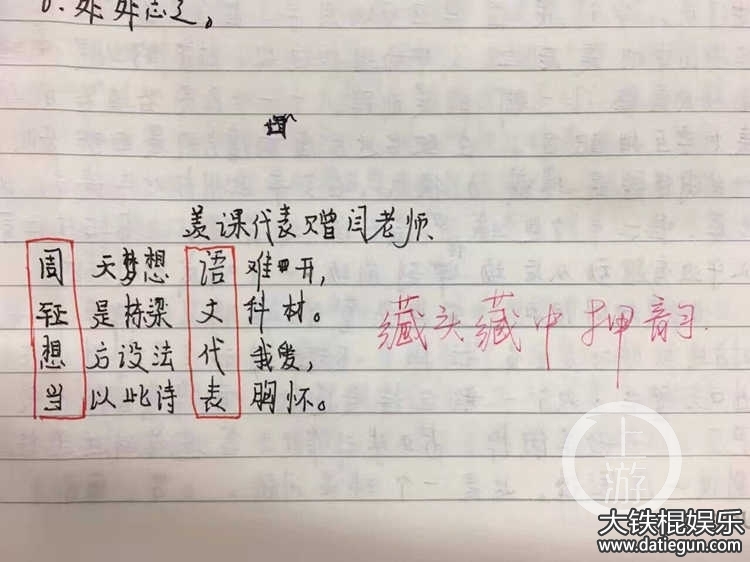 6. 处处志之。
课代表赠闫老师
周天梦想语难开,
是栋梁文科材。
想方设法代我爱,
当以此诗表胸怀。
藏头藏中押韵.
上游
大铁棍娱乐
www.datiegun.com